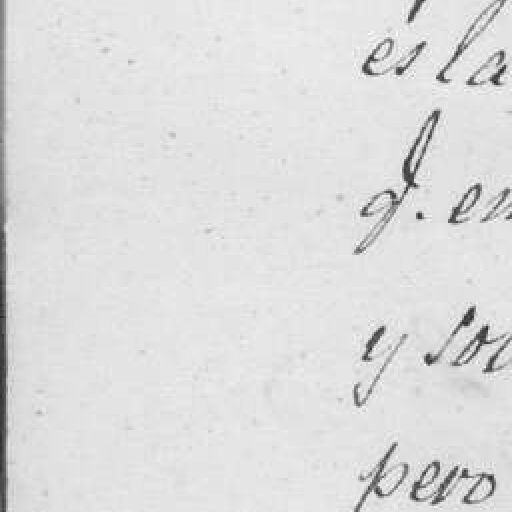 es la
q. en
y so
pero